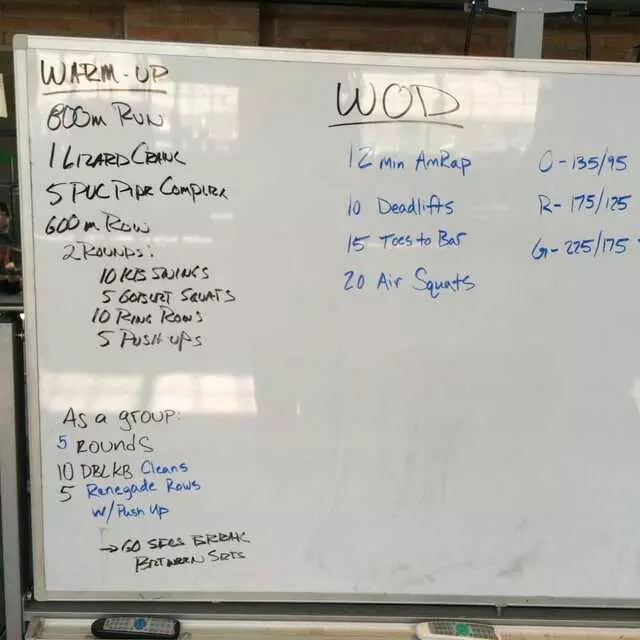 WARM-UP
600m RUN
1 LIZARD CRAWL
5 PVC PIPE COMPLEX
600 m ROW
2 ROUNDS:
10 KB SWINGS
5 GOBLET SQUATS
10 RING ROWS
5 PUSH UPS
As a group:
5 ROUNDS
10 DBL KB Cleans
5 Renegade Rows
w/ Push Up
→ 60 SECS BREAK
BETWEEN SETS
WOD
12 min AmRap
10 Deadlifts
15 Toes to Bar
20 Air Squats
O-135/95
R-175/125
G-225/175